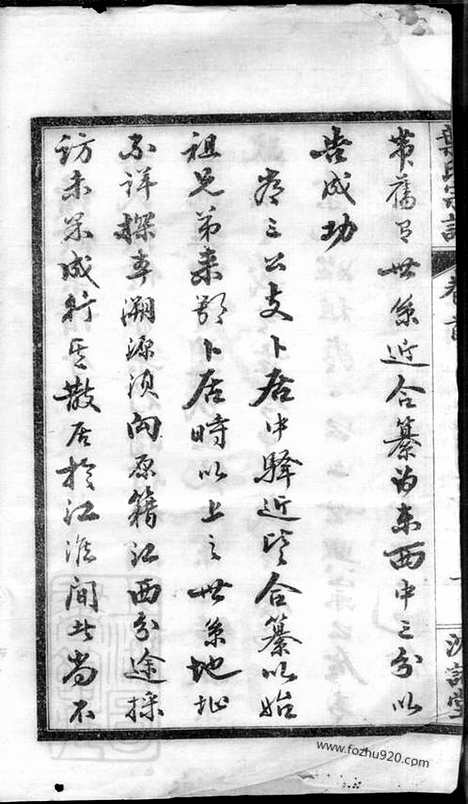 葉氏宗譜
卷首
黄舊旧世系近合纂为東西中三分以
告成功
彦三公支卜居中驿近此合纂以始
祖兄弟来鄂卜居時以上之世系地址
不詳探本溯源須向原籍江西分途採
訪未果成行其散居於江淮間者尚不
www.fozhu920.com